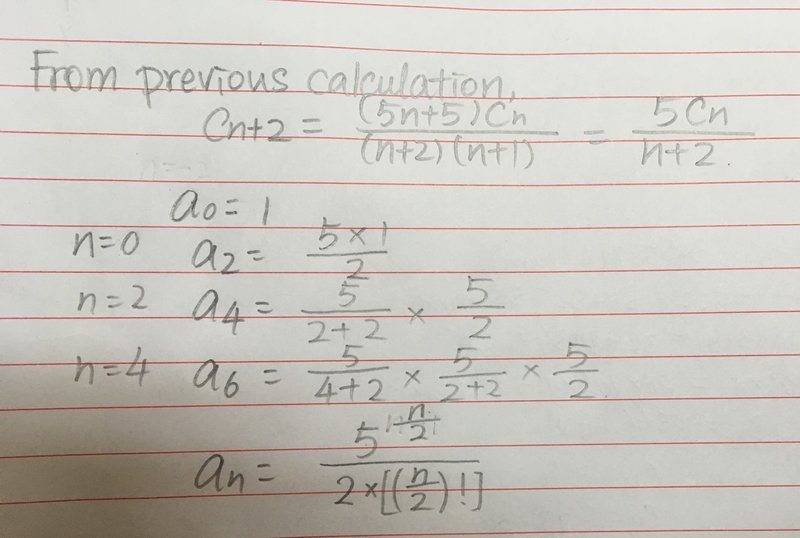 From previous calculation,
Cn+2 = (5n+5)Cn / (n+2)(n+1) = 5Cn / n+2.
a0 = 1
n=0 a2 = 5×1 / 2
n=2 a4 = 5 / 2+2 × 5 / 2
n=4 a6 = 5 / 4+2 × 5 / 2+2 × 5 / 2
an = 5^(n/2) / 2×[(n/2)!]